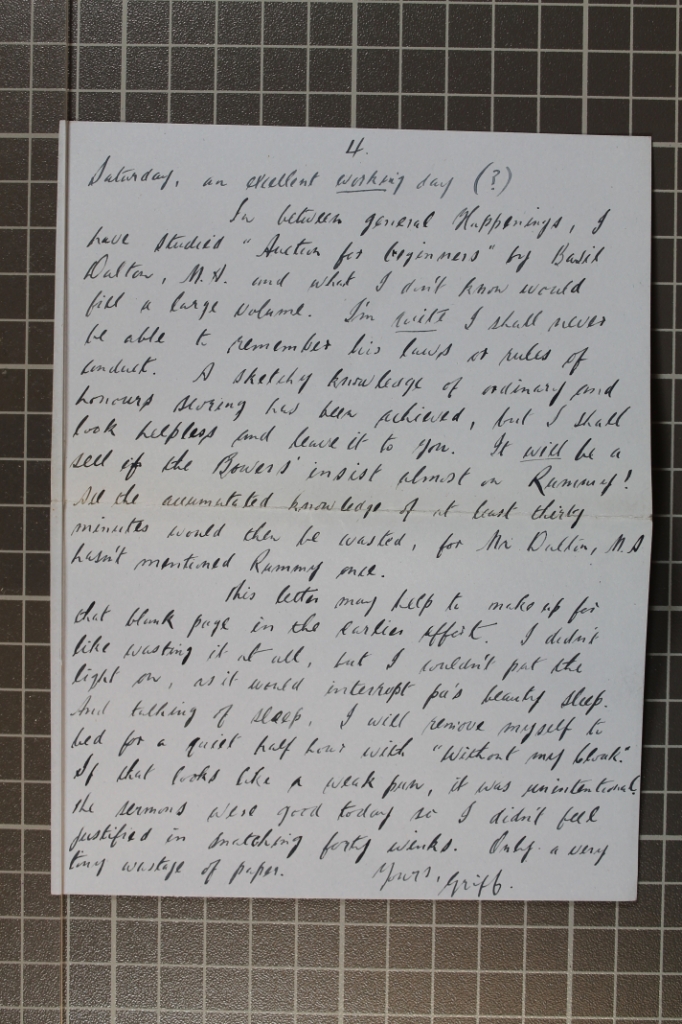 4.
Saturday, an excellent working day (?)
In between general Happenings, I
have studied "Auction for beginners" by Basil
Dalton, M.A. and what I don't know would
fill a large volume. I'm quite I shall never
be able to remember his laws or rules of
conduct. A sketchy knowledge of ordinary and
honours scoring has been achieved, but I shall
look helpless and leave it to you. It will be a
sell if the Bowers' insist almost on Rummy!
All the accumulated knowledge of at least thirty
minutes would then be wasted, for Mr Dalton, M.A
hasn't mentioned Rummy once.
This letter may help to make up for
that blank page in the earlier effort. I didn't
like wasting it at all, but I wouldn't put the
light on, as it would interrupt pa's beauty sleep.
And talking of sleep, I will remove myself to
bed for a quiet half hour with "Without my cloak".
If that looks like a weak pun, it was unintentional.
The sermons were good today so I didn't feel
justified in snatching forty winks. Only a very
tiny wastage of paper.
Yours, Griff.